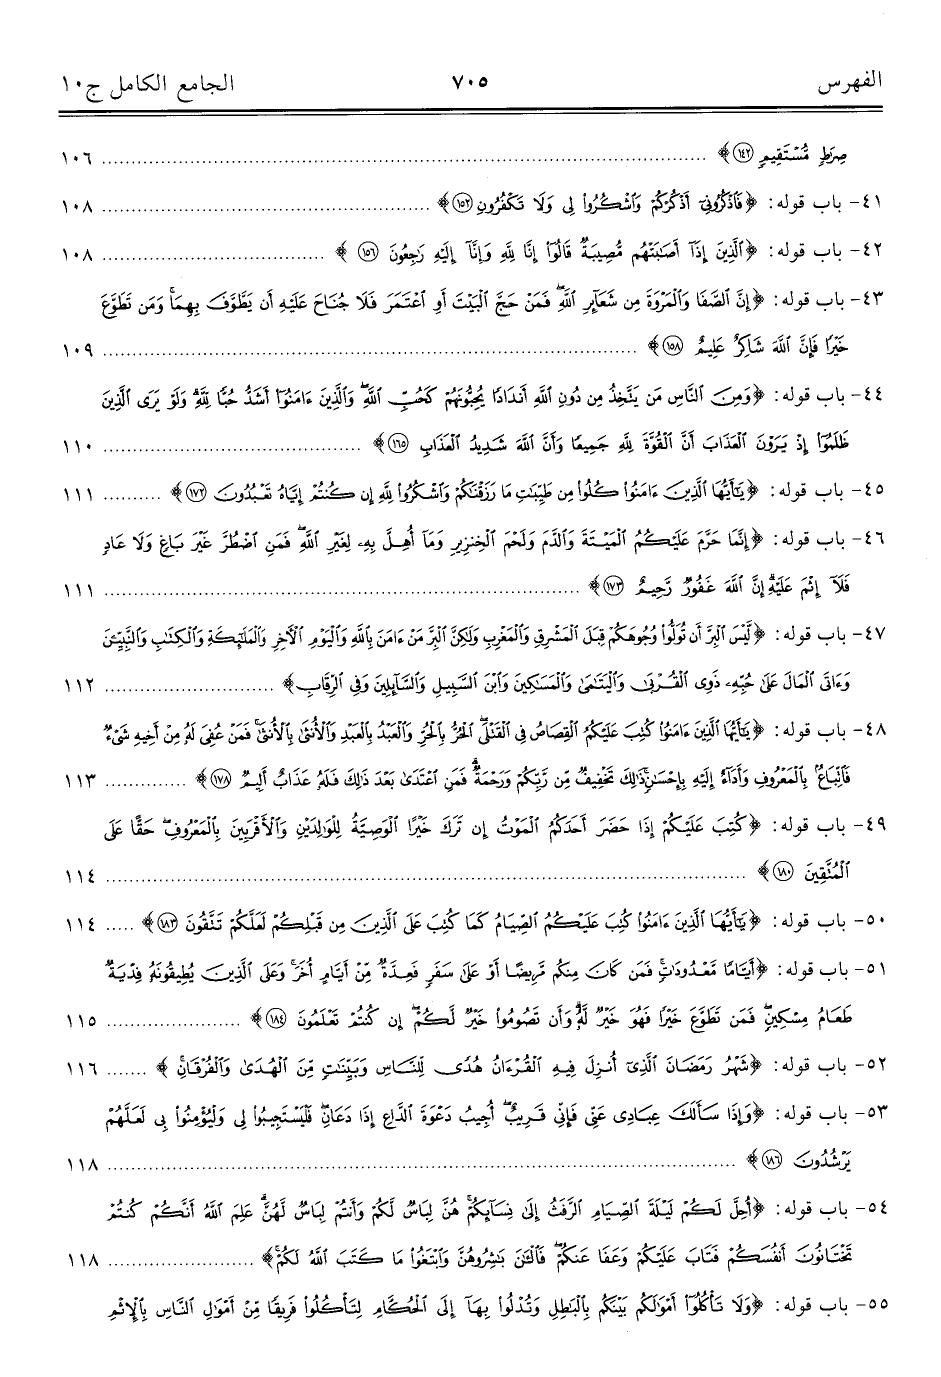 الفهرس ٧٠٥ الجامع الكامل ج١٠
صِرَٰطٍ مُّسْتَقِيمٍ ﴿١٤٢﴾﴾ ........ ١٠٦
٤١- باب قوله: ﴿فَاذْكُرُونِي أَذْكُرْكُمْ وَاشْكُرُوا لِي وَلَا تَكْفُرُونِ ﴿١٥٢﴾﴾ ........ ١٠٨
٤٢- باب قوله: ﴿الَّذِينَ إِذَا أَصَابَتْهُم مُّصِيبَةٌ قَالُوا إِنَّا لِلَّهِ وَإِنَّا إِلَيْهِ رَاجِعُونَ ﴿١٥٦﴾﴾ ........ ١٠٨
٤٣- باب قوله: ﴿إِنَّ الصَّفَا وَالْمَرْوَةَ مِن شَعَائِرِ اللَّهِ فَمَنْ حَجَّ الْبَيْتَ أَوِ اعْتَمَرَ فَلَا جُنَاحَ عَلَيْهِ أَن يَطَّوَّفَ بِهِمَا وَمَن تَطَوَّعَ
خَيْرًا فَإِنَّ اللَّهَ شَاكِرٌ عَلِيمٌ ﴿١٥٨﴾﴾ ........ ١٠٩
٤٤- باب قوله: ﴿وَمِنَ النَّاسِ مَن يَتَّخِذُ مِن دُونِ اللَّهِ أَندَادًا يُحِبُّونَهُمْ كَحُبِّ اللَّهِ وَالَّذِينَ ءَامَنُوا أَشَدُّ حُبًّا لِّلَّهِ وَلَوْ يَرَى الَّذِينَ
ظَلَمُوا إِذْ يَرَوْنَ الْعَذَابَ أَنَّ الْقُوَّةَ لِلَّهِ جَمِيعًا وَأَنَّ اللَّهَ شَدِيدُ الْعَذَابِ ﴿١٦٥﴾﴾ ........ ١١٠
٤٥- باب قوله: ﴿يَا أَيُّهَا الَّذِينَ ءَامَنُوا كُلُوا مِن طَيِّبَاتِ مَا رَزَقْنَاكُمْ وَاشْكُرُوا لِلَّهِ إِن كُنتُمْ إِيَّاهُ تَعْبُدُونَ ﴿١٧٢﴾﴾ ........ ١١١
٤٦- باب قوله: ﴿إِنَّمَا حَرَّمَ عَلَيْكُمُ الْمَيْتَةَ وَالدَّمَ وَلَحْمَ الْخِنزِيرِ وَمَا أُهِلَّ بِهِ لِغَيْرِ اللَّهِ فَمَنِ اضْطُرَّ غَيْرَ بَاغٍ وَلَا عَادٍ
فَلَا إِثْمَ عَلَيْهِ إِنَّ اللَّهَ غَفُورٌ رَّحِيمٌ ﴿١٧٣﴾﴾ ........ ١١١
٤٧- باب قوله: ﴿لَّيْسَ الْبِرَّ أَن تُوَلُّوا وُجُوهَكُمْ قِبَلَ الْمَشْرِقِ وَالْمَغْرِبِ وَلَٰكِنَّ الْبِرَّ مَنْ ءَامَنَ بِاللَّهِ وَالْيَوْمِ الْآخِرِ وَالْمَلَائِكَةِ وَالْكِتَابِ وَالنَّبِيِّينَ
وَءَاتَى الْمَالَ عَلَىٰ حُبِّهِ ذَوِي الْقُرْبَىٰ وَالْيَتَامَىٰ وَالْمَسَاكِينَ وَابْنَ السَّبِيلِ وَالسَّائِلِينَ وَفِي الرِّقَابِ﴾ ........ ١١٢
٤٨- باب قوله: ﴿يَا أَيُّهَا الَّذِينَ ءَامَنُوا كُتِبَ عَلَيْكُمُ الْقِصَاصُ فِي الْقَتْلَى الْحُرُّ بِالْحُرِّ وَالْعَبْدُ بِالْعَبْدِ وَالْأُنثَىٰ بِالْأُنثَىٰ فَمَنْ عُفِيَ لَهُ مِنْ أَخِيهِ شَيْءٌ
فَاتِّبَاعٌ بِالْمَعْرُوفِ وَأَدَاءٌ إِلَيْهِ بِإِحْسَانٍ ذَٰلِكَ تَخْفِيفٌ مِّن رَّبِّكُمْ وَرَحْمَةٌ فَمَنِ اعْتَدَىٰ بَعْدَ ذَٰلِكَ فَلَهُ عَذَابٌ أَلِيمٌ ﴿١٧٨﴾﴾ ........ ١١٣
٤٩- باب قوله: ﴿كُتِبَ عَلَيْكُمْ إِذَا حَضَرَ أَحَدَكُمُ الْمَوْتُ إِن تَرَكَ خَيْرًا الْوَصِيَّةُ لِلْوَالِدَيْنِ وَالْأَقْرَبِينَ بِالْمَعْرُوفِ حَقًّا عَلَى
الْمُتَّقِينَ ﴿١٨٠﴾﴾ ........ ١١٤
٥٠- باب قوله: ﴿يَا أَيُّهَا الَّذِينَ ءَامَنُوا كُتِبَ عَلَيْكُمُ الصِّيَامُ كَمَا كُتِبَ عَلَى الَّذِينَ مِن قَبْلِكُمْ لَعَلَّكُمْ تَتَّقُونَ ﴿١٨٣﴾﴾ ..... ١١٤
٥١- باب قوله: ﴿أَيَّامًا مَّعْدُودَاتٍ فَمَن كَانَ مِنكُم مَّرِيضًا أَوْ عَلَىٰ سَفَرٍ فَعِدَّةٌ مِّنْ أَيَّامٍ أُخَرَ وَعَلَى الَّذِينَ يُطِيقُونَهُ فِدْيَةٌ
طَعَامُ مِسْكِينٍ فَمَن تَطَوَّعَ خَيْرًا فَهُوَ خَيْرٌ لَّهُ وَأَن تَصُومُوا خَيْرٌ لَّكُمْ إِن كُنتُمْ تَعْلَمُونَ ﴿١٨٤﴾﴾ ........ ١١٥
٥٢- باب قوله: ﴿شَهْرُ رَمَضَانَ الَّذِي أُنزِلَ فِيهِ الْقُرْءَانُ هُدًى لِّلنَّاسِ وَبَيِّنَاتٍ مِّنَ الْهُدَىٰ وَالْفُرْقَانِ﴾ ....... ١١٦
٥٣- باب قوله: ﴿وَإِذَا سَأَلَكَ عِبَادِي عَنِّي فَإِنِّي قَرِيبٌ أُجِيبُ دَعْوَةَ الدَّاعِ إِذَا دَعَانِ فَلْيَسْتَجِيبُوا لِي وَلْيُؤْمِنُوا بِي لَعَلَّهُمْ
يَرْشُدُونَ ﴿١٨٦﴾﴾ ........ ١١٨
٥٤- باب قوله: ﴿أُحِلَّ لَكُمْ لَيْلَةَ الصِّيَامِ الرَّفَثُ إِلَىٰ نِسَائِكُمْ هُنَّ لِبَاسٌ لَّكُمْ وَأَنتُمْ لِبَاسٌ لَّهُنَّ عَلِمَ اللَّهُ أَنَّكُمْ كُنتُمْ
تَخْتَانُونَ أَنفُسَكُمْ فَتَابَ عَلَيْكُمْ وَعَفَا عَنكُمْ فَالْآنَ بَاشِرُوهُنَّ وَابْتَغُوا مَا كَتَبَ اللَّهُ لَكُمْ﴾ ........ ١١٨
٥٥- باب قوله: ﴿وَلَا تَأْكُلُوا أَمْوَالَكُم بَيْنَكُم بِالْبَاطِلِ وَتُدْلُوا بِهَا إِلَى الْحُكَّامِ لِتَأْكُلُوا فَرِيقًا مِّنْ أَمْوَالِ النَّاسِ بِالْإِثْمِ